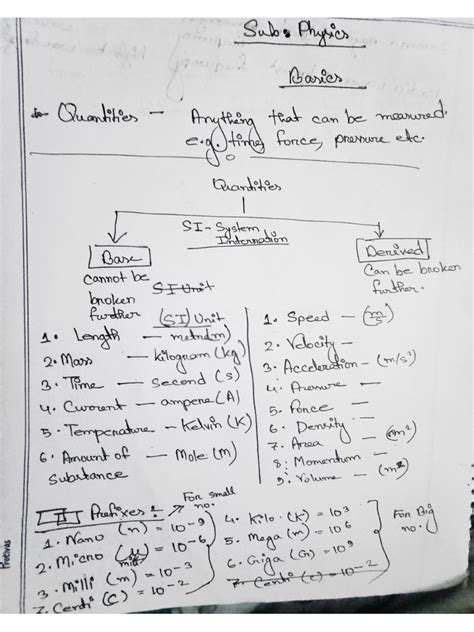 Sub: Physics
Basics
* Quantities - Anything that can be measured.
e.g. time, force, pressure etc.
Quantities
SI - System
Internation
Base
cannot be
broken
further
SI Unit
(SI) Unit
1. Length —
2. Mass — kilogram (kg)
3. Time — Second (s)
4. Current — ampere (A)
5. Temperature — Kelvin (K)
6. Amount of — Mole (M)
Substance
Derived
Can be broken
further.
1. Speed — (m/s)
2. Velocity —
3. Acceleration — (m/s²)
4. Pressure —
5. Force —
6. Density —
7. Area — (m²)
8. Momentum —
9. Volume —
II Prefixes :
For small
no.
1. Nano (n) = 10⁻⁹
2. Micro (μ) = 10⁻⁶
3. Milli (m) = 10⁻³
7. Centi (C) = 10⁻²
4. Kilo (k) = 10³
5. Mega (m) = 10⁶
6. Giga (G) = 10⁹
7. Centi (c) = 10⁻²
For Big
no.